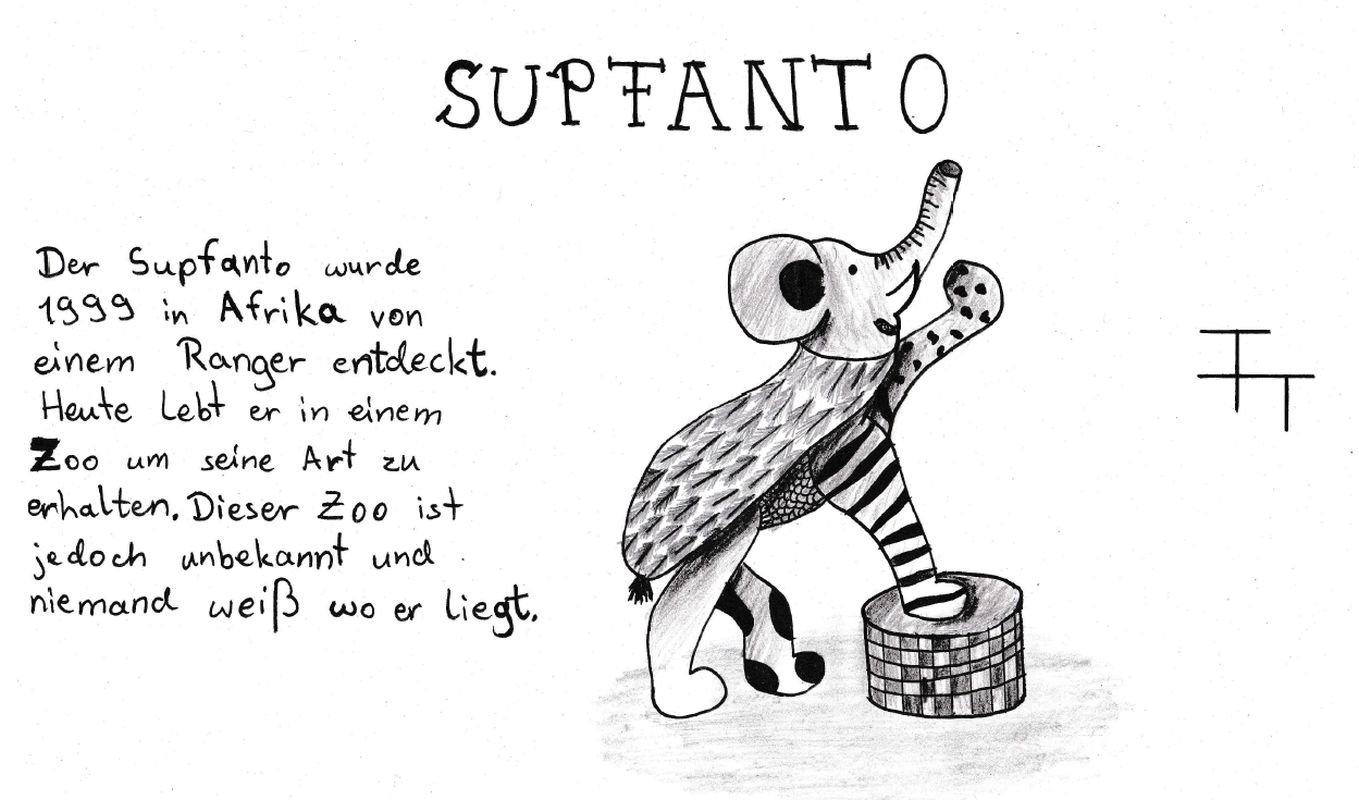 SUPFANTO
Der Supfanto wurde
1999 in Afrika von
einem Ranger entdeckt.
Heute lebt er in einem
Zoo um seine Art zu
erhalten. Dieser Zoo ist
jedoch unbekannt und
niemand weiß wo er liegt.